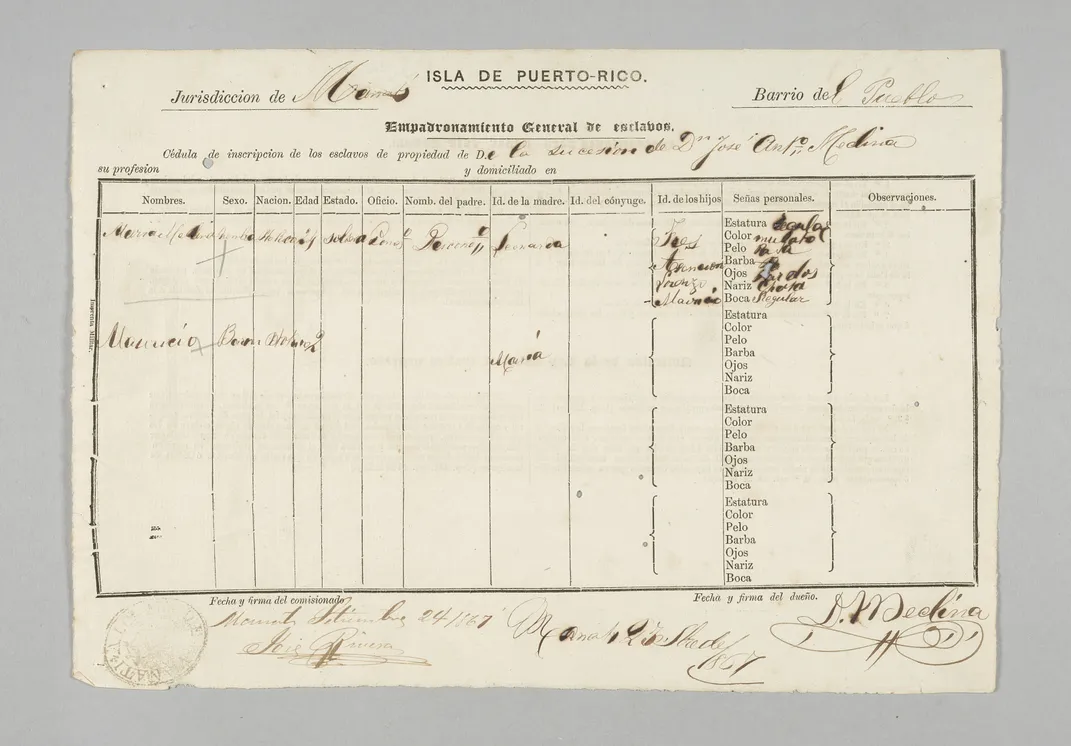 ISLA DE PUERTO-RICO.
Jurisdiccion de Manatí
Barrio del Pueblo
Empadronamiento General de esclavos.
Cédula de inscripcion de los esclavos de propiedad de D.e la sucesion de Dn José Anto Medina
su profesion y domiciliado en
Nombres. Sexo. Nacion. Edad Estado. Oficio. Nomb. del padre. Id. de la madre. Id. del cónyuge. Id. de los hijos Señas personales. Observaciones.
Maria Soltera Leonarda Tres Estatura Regular
Color mulato
Pelo Pasa
Asencion Barba
Lorenzo Ojos Pardos
Nariz Chata
Mauricio Boca Regular
Mauricio Maria
Estatura
Color
Pelo
Barba
Ojos
Nariz
Boca
Estatura
Color
Pelo
Barba
Ojos
Nariz
Boca
Estatura
Color
Pelo
Barba
Ojos
Nariz
Boca
Imprenta Militar.
Fecha y firma del comisionado
Fecha y firma del dueño.
Manati Setiembre 24/867
José Rivera
Manatí 1867
Medina